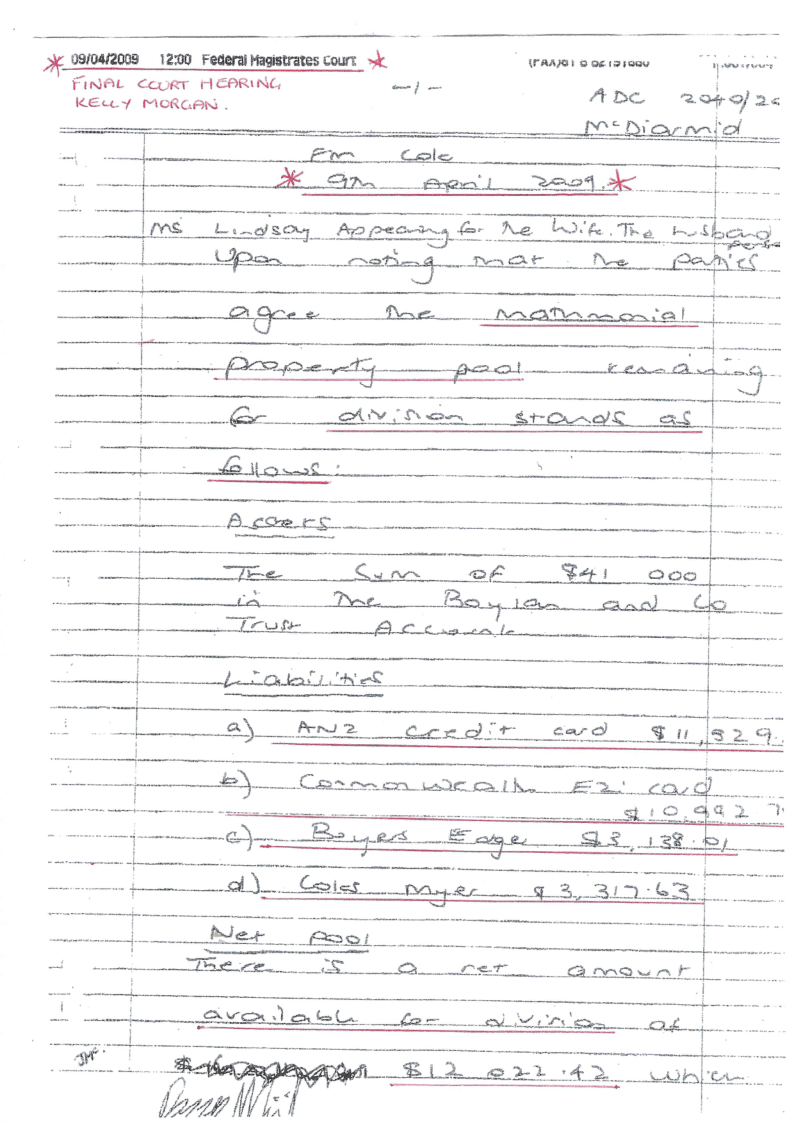 * 09/04/2009 12:00 Federal Magistrates Court *
FINAL COURT HEARING
KELLY MORGAN.
-1-
ADC 2040/20
McDiarmid
Fm Cole
* 9th April 2009. *
Ms Lindsay Appearing for the Wife. The husband
Upon noting that the parties
agree the matrimonial
property pool remaining
for division stands as
follows:
Assets
The Sum of $41 000
in the Boylan and Co
Trust Account
Liabilities
a) ANZ credit card $11,529.
b) Commonwealth Ezi card
$10,992 7
c) Buyers Edge $3,138.01
d) Coles Myer $3,317.63
Net pool
There is a net amount
available for division of
$12 022.42 which